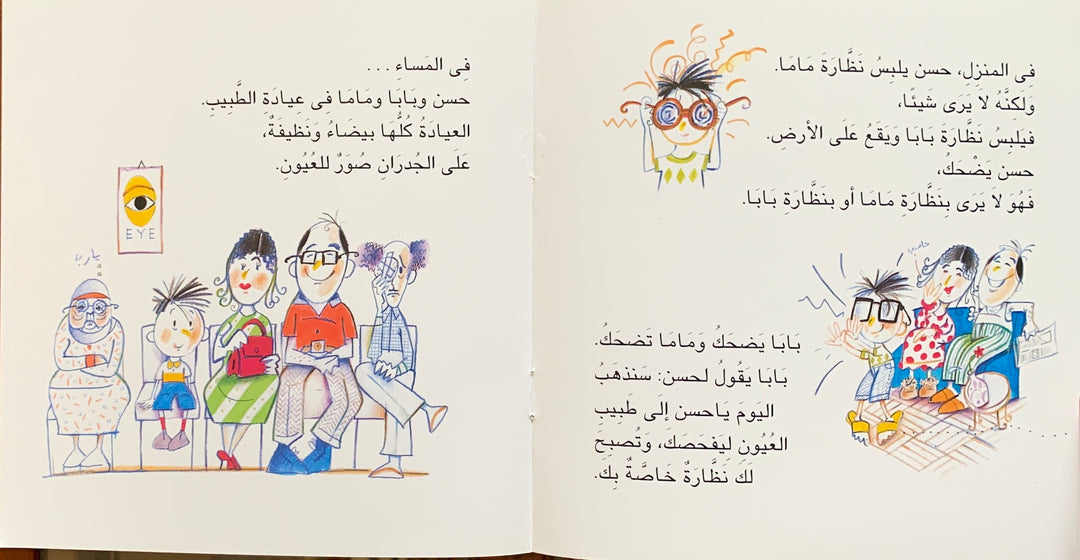 فِى المنزِل، حسن يلبِسُ نَظَّارَةَ مَامَا.
وَلكِنَّهُ لا يَرَى شَيئًا،
فيَلبِسُ نَظَّارَةَ بَابَا وَيَقَعُ عَلَى الأرضِ.
حسن يَضْحَكُ،
فَهُوَ لاَ يَرَى بِنَظَّارَةِ مَامَا أو بنَظَّارَةِ بَابَا.
بَابَا يَضحَكُ وَمَامَا تَضحَكُ.
بَابَا يَقُولُ لحسن: سَنَذهَبُ
اليَومَ يَاحسن إلَى طَبِيبِ
العُيُونِ ليَفحَصَك، وتُصبِح
لَكَ نَظَّارَةٌ خَاصَّةٌ بِك.
فِى المَساءِ ...
حسن وبَابَا ومَامَا فى عِيادَةِ الطَّبِيبِ.
العيادَةُ كُلُّهَا بيضَاءُ وَنَظيفَةٌ،
عَلَى الجُدرَانِ صُوَرٌ للعُيُونِ.
EYE
يارب